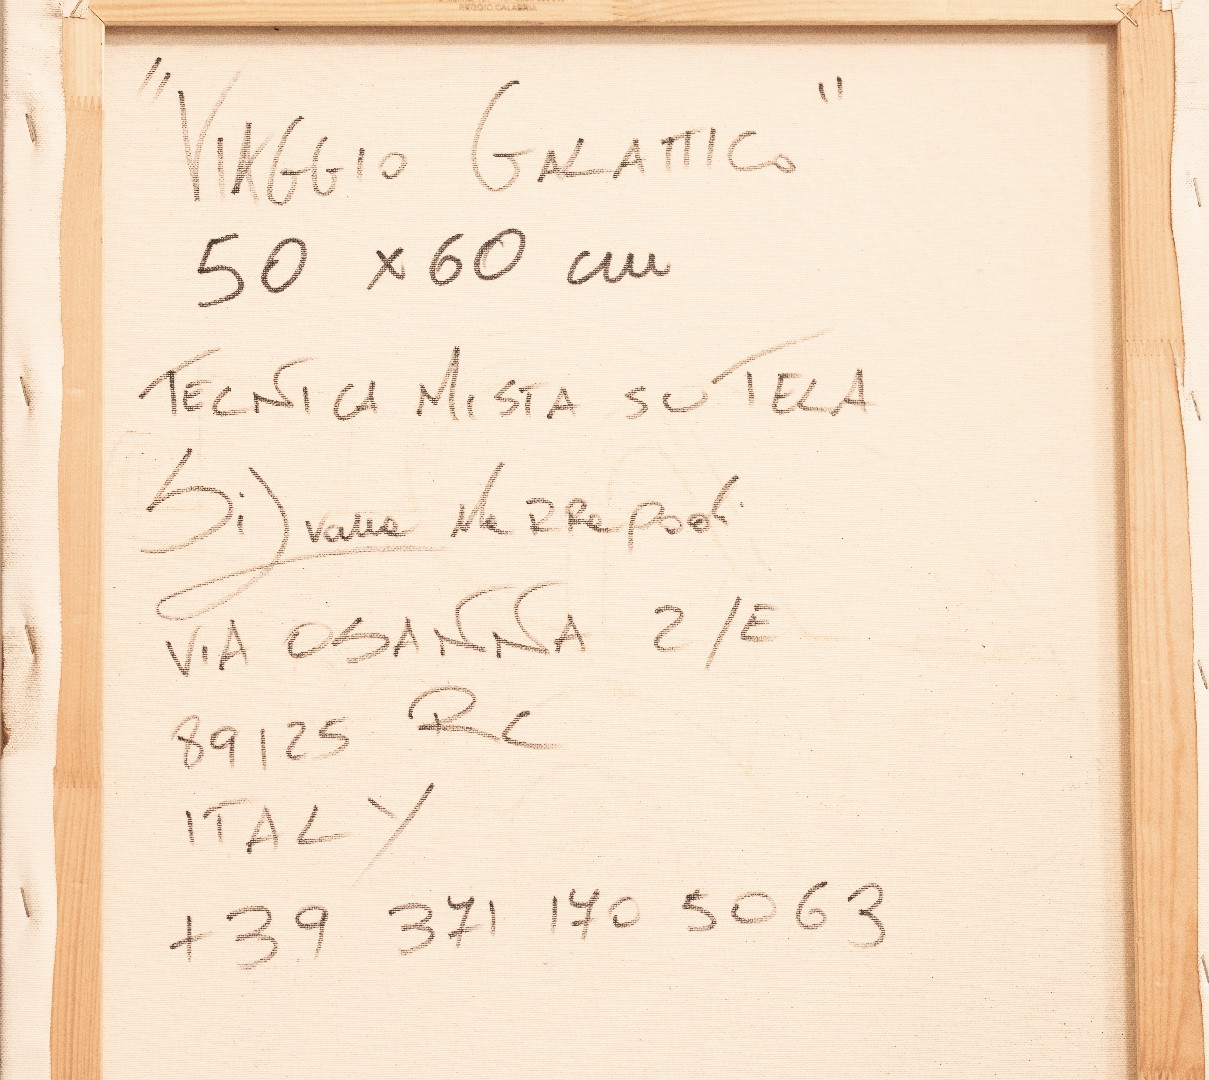 REGGIO CALABRIA
"VIAGGIO GALATTICO"
50 x 60 cm
TECNICA MISTA SU TELA
Silvana Marrapodi
VIA OSANNA 2/E
89125 RC
ITALY
+39 371 170 5063